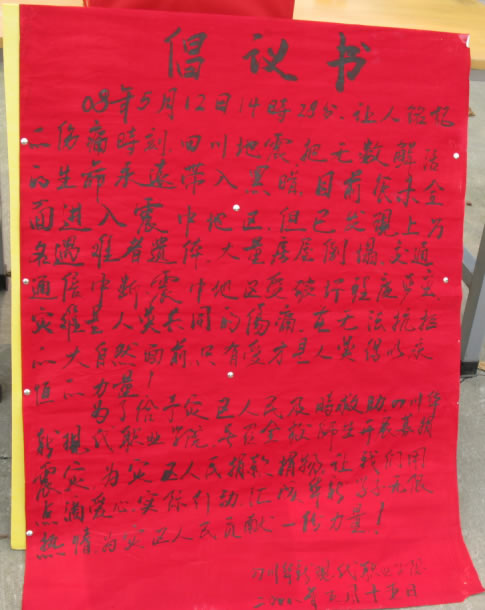 倡议书
08年5月12日14時28分,让人铭记
的伤痛時刻,四川地震把无数鲜活
的生命永遠带入黑暗,目前很未全
面进入震中地区,但已发現上万
名遇难者遗体,大量房屋倒塌,交通
通信中断,震中地区受破坏程度严重,
灾难是人类共同的伤痛,在无法抗拒
的大自然面前,只有爱才是人类得以永
恒的力量!
为了给予灾区人民及時救助,四川华
新現代职业学院号召全校师生开展募捐
震灾,为灾区人民捐款、捐物,让我们用
点滴爱心,实际行动,汇成华新学子无限
热情为灾区人民贡献一份力量!
四川华新現代职业学院
二〇〇八年五月十五日